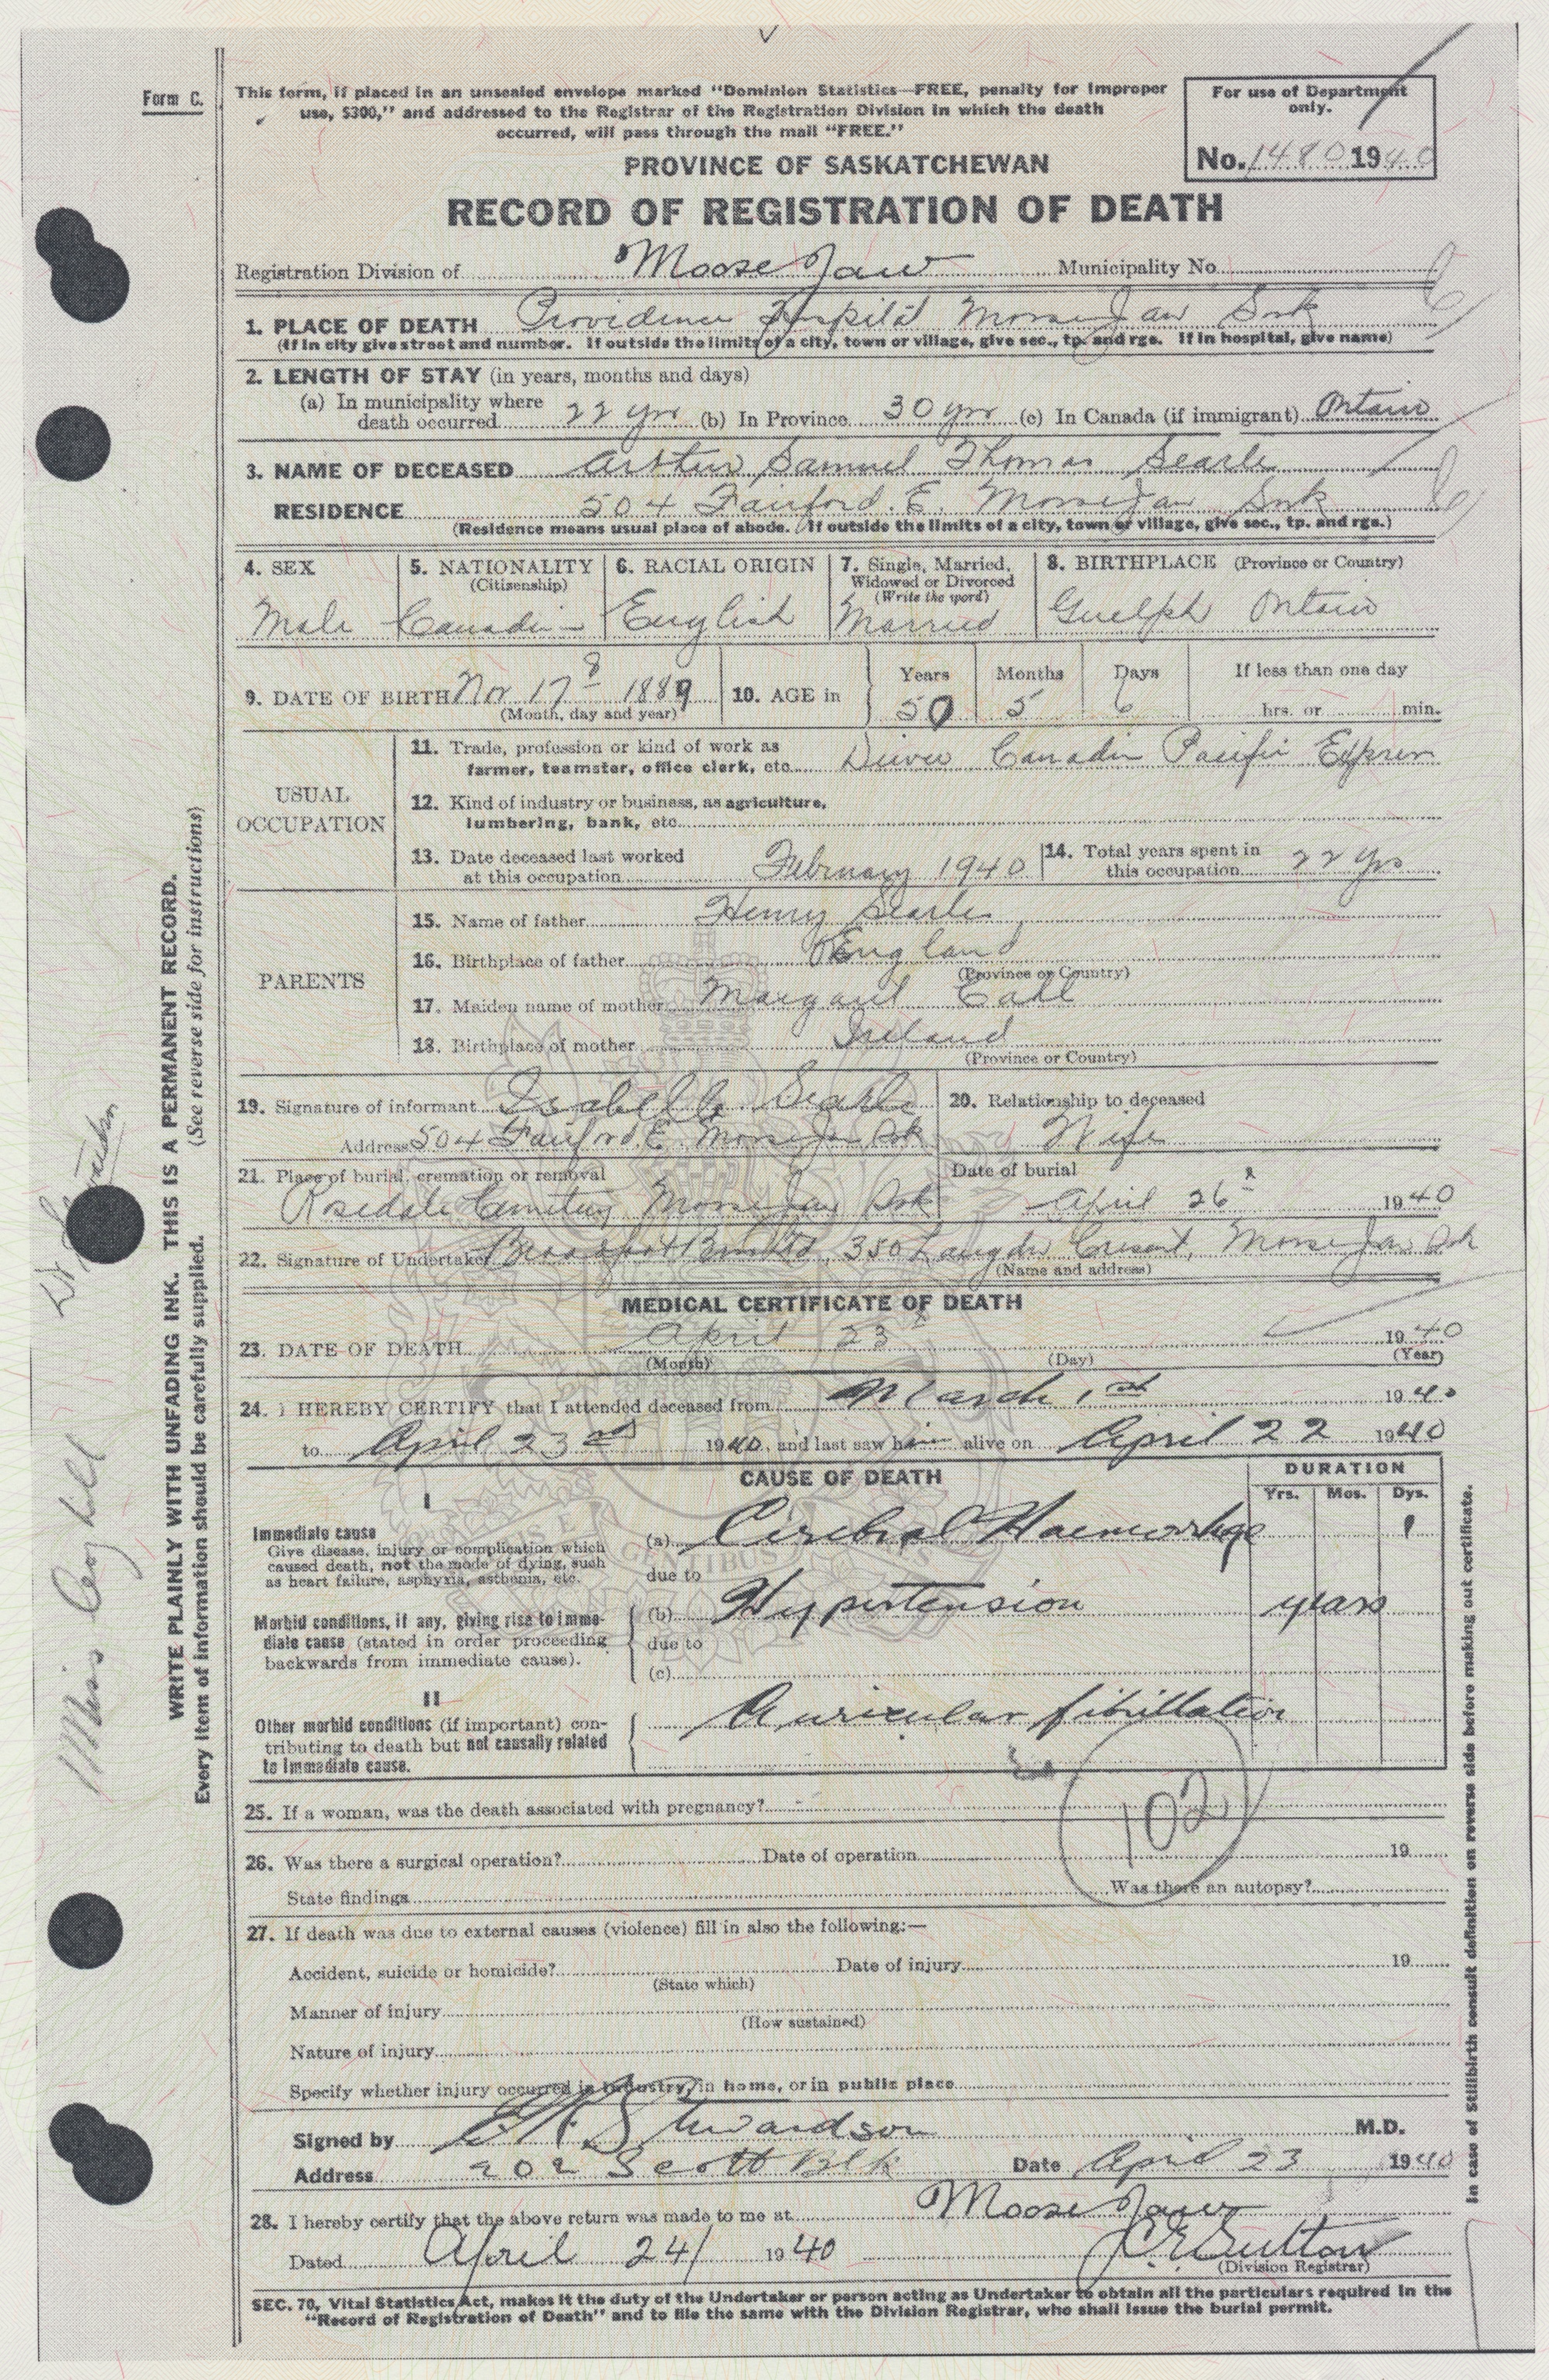 Form C.
This form, if placed in an unsealed envelope marked "Dominion Statistics—FREE, penalty for improper
use, $300," and addressed to the Registrar of the Registration Division in which the death
occurred, will pass through the mail "FREE."
For use of Department
only.
No. 1480 1940
PROVINCE OF SASKATCHEWAN
RECORD OF REGISTRATION OF DEATH
Registration Division of Moose Jaw Municipality No.
1. PLACE OF DEATH Providence Hospital Moose Jaw Sask
(If in city give street and number. If outside the limits of a city, town or village, give sec., tp. and rge. If in hospital, give name)
2. LENGTH OF STAY (in years, months and days)
(a) In municipality where
death occurred 22 yrs (b) In Province 30 yrs (c) In Canada (if immigrant) Ontario
3. NAME OF DECEASED Arthur Samuel Thomas Searle
RESIDENCE 504 Fairford. E. Moose Jaw Sask
(Residence means usual place of abode. If outside the limits of a city, town or village, give sec., tp. and rge.)
4. SEX 5. NATIONALITY 6. RACIAL ORIGIN 7. Single, Married, 8. BIRTHPLACE (Province or Country)
(Citizenship) Widowed or Divorced
(Write the word)
Male Canadian English Married Guelph Ontario
9. DATE OF BIRTH Nov 17 1889 10. AGE in Years Months Days If less than one day
(Month, day and year) 50 5 6 hrs. or min.
USUAL OCCUPATION
11. Trade, profession or kind of work as
farmer, teamster, office clerk, etc. Driver Canadian Pacific Express
12. Kind of industry or business, as agriculture,
lumbering, bank, etc.
13. Date deceased last worked
at this occupation February 1940 14. Total years spent in
this occupation 22 yrs
PARENTS
15. Name of father Henry Searle
16. Birthplace of father England
(Province or Country)
17. Maiden name of mother Margaret
18. Birthplace of mother Ireland
(Province or Country)
19. Signature of informant Isabella Searle 20. Relationship to deceased
Address 504 Fairford. E. Moose Jaw Sask Wife
21. Place of burial, cremation or removal Date of burial
Rosedale Cemetery Moose Jaw Sask April 26 1940
22. Signature of Undertaker Bros Ltd 350 Langdon Cresent, Moose Jaw Sask
(Name and address)
MEDICAL CERTIFICATE OF DEATH
23. DATE OF DEATH April 23 1940
(Month) (Day) (Year)
24. I HEREBY CERTIFY that I attended deceased from March 1st 1940
to April 23rd 1940, and last saw him alive on April 22 1940
CAUSE OF DEATH DURATION
Yrs. Mos. Dys.
I
Immediate cause
Give disease, injury or complication which
caused death, not the mode of dying, such
as heart failure, asphyxia, asthenia, etc.
(a) Cerebral Haemorrhage 1
due to
Morbid conditions, if any, giving rise to imme-
diate cause (stated in order proceeding
backwards from immediate cause).
(b) Hypertension years
due to
(c)
II
Other morbid conditions (if important) con-
tributing to death but not causally related
to immediate cause.
Auricular fibrillation
102
25. If a woman, was the death associated with pregnancy? -
26. Was there a surgical operation? Date of operation 19
State findings Was there an autopsy?
27. If death was due to external causes (violence) fill in also the following:—
Accident, suicide or homicide? Date of injury 19
(State which)
Manner of injury
(How sustained)
Nature of injury
Specify whether injury occurred in industry, in home, or in public place
Signed by Stewardson M.D.
Address 202 Scott Blk Date April 23 1940
28. I hereby certify that the above return was made to me at Moose Jaw
Dated April 24/ 1940 Sutton
(Division Registrar)
SEC. 70, Vital Statistics Act, makes it the duty of the Undertaker or person acting as Undertaker to obtain all the particulars required in the
"Record of Registration of Death" and to file the same with the Division Registrar, who shall issue the burial permit.
WRITE PLAINLY WITH UNFADING INK. THIS IS A PERMANENT RECORD.
Every item of information should be carefully supplied. (See reverse side for instructions)
In case of Stillbirth consult definition on reverse side before making out certificate.
Miss
Dr
GENTIBUS